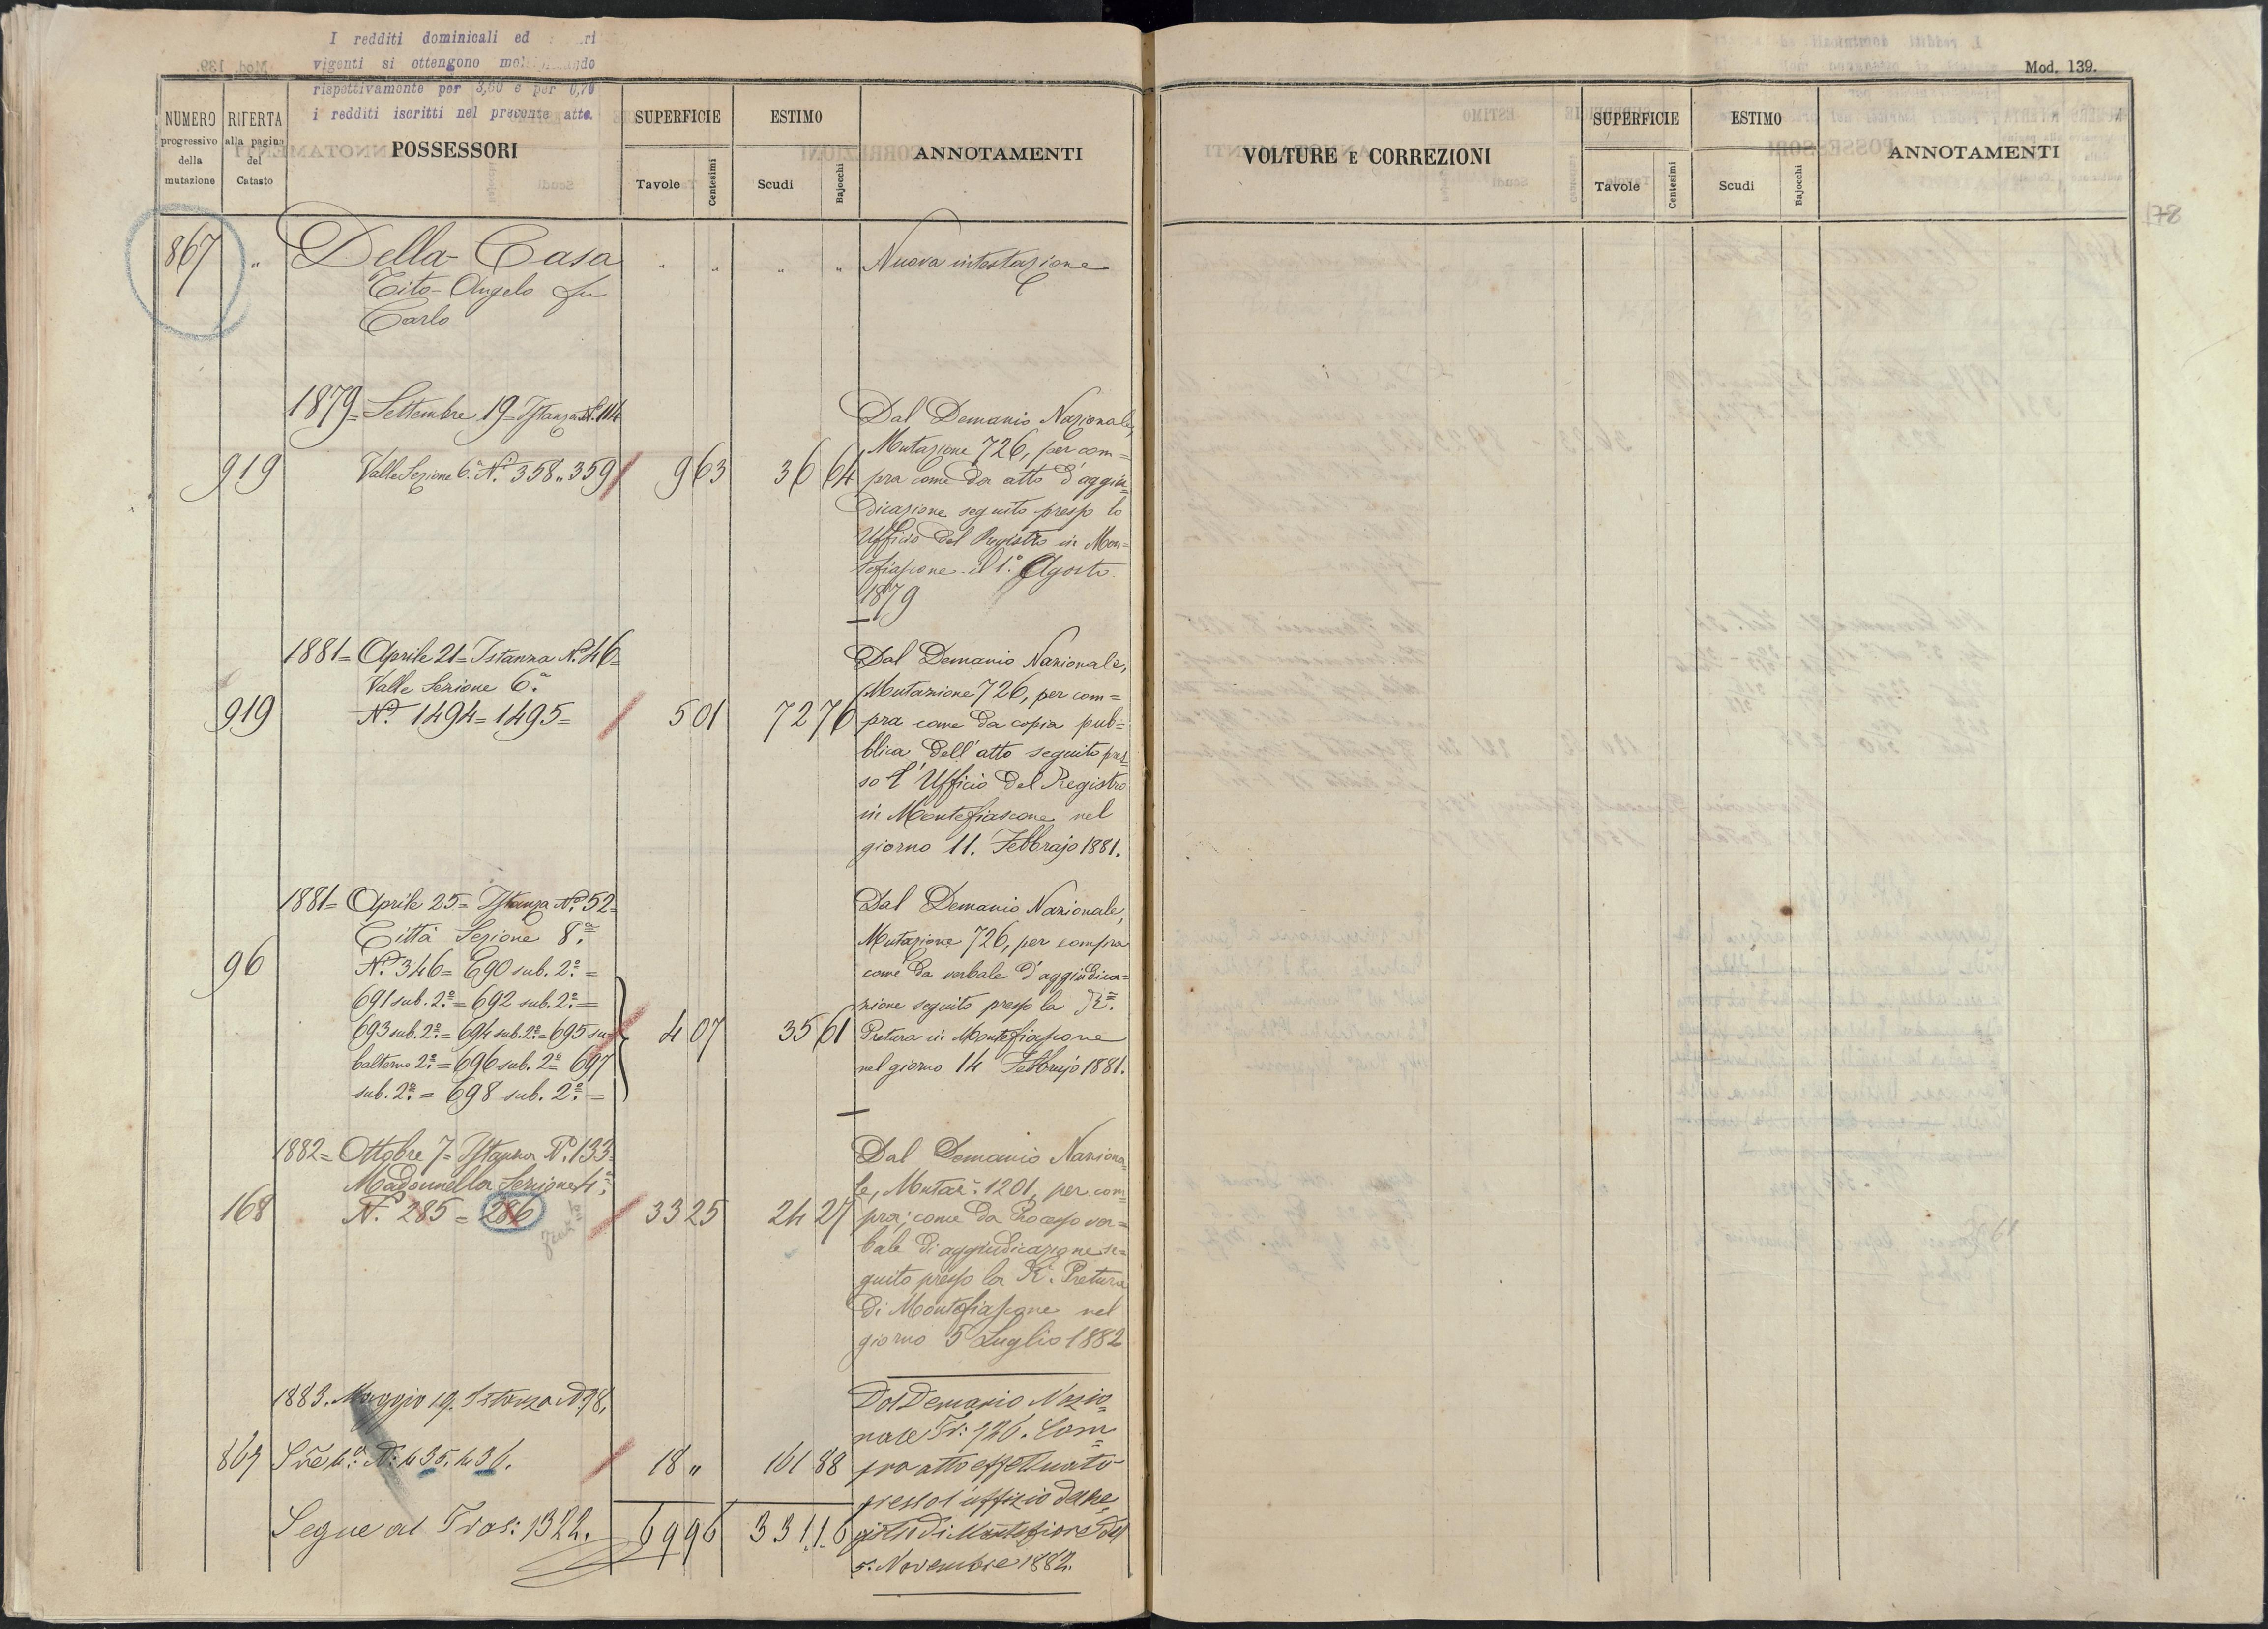 I redditi dominicali ed
vigenti si ottengono
rispettivamente per 3,60 e per 0,70
i redditi iscritti nel presente atto.
Mod. 139.
NUMERO progressivo della mutazione
RIFERTA alla pagina del Catasto
POSSESSORI
SUPERFICIE
Tavole Centesimi
ESTIMO
Scudi Bajocchi
ANNOTAMENTI
VOLTURE E CORREZIONI
SUPERFICIE
Tavole Centesimi
ESTIMO
Scudi Bajocchi
ANNOTAMENTI
178
867 " Della Casa " " " " Nuova intestazione
Tito-Angelo fu
Carlo
1879= Settembre 19= Istanza N.º 114
919 Valle Sezione 6.ª N.i 358 „ 359 9 63 36 64
Dal Demanio Nazionale,
Mutazione 726, per com=
pra come da atto d'aggiu=
dicazione seguito presso lo
Ufficio del Registro in Mon=
tefiascone il 1.º Agosto
1879
1881= Aprile 21= Istanza N.º 46=
Valle Sezione 6.ª
919 N.i 1494= 1495= 5 01 72 76
Dal Demanio Nazionale,
Mutazione 726, per com=
pra come da copia pub=
blica dell'atto seguito pres=
so l'Ufficio del Registro
in Montefiascone nel
giorno 11. Febbrajo 1881.
1881= Aprile 25= Istanza N.º 52=
Città Sezione 8.ª
96 N.i 346= 690 sub. 2.º =
691 sub. 2.º = 692 sub. 2.º =
693 sub. 2.º = 694 sub. 2.º = 695 su= 4 07 35 61
balterno 2.º = 696 sub. 2.º = 697
sub. 2.º = 698 sub. 2.º =
Dal Demanio Nazionale,
Mutazione 726, per compra
come da verbale d'aggiudica=
zione seguito presso la R.ª
Pretura in Montefiascone
nel giorno 14 Febbrajo 1881.
1882= Ottobre 7= Istanza N.º 133=
Madonnella Sezione 4.ª
168 N. 285 = 286 33 25 24 27
Dal Demanio Naziona=
le, Mutaz.e 1201, per com=
pra, come da Processo ver=
bale di aggiudicazione se=
guito presso la R. Pretura
di Montefiascone nel
giorno 5 Luglio 1882
1883. Maggio 19. Istanza N. 78.
869 Sez.e 4.ª N.i 435. 436. 18 „ 161 88
Segue al Tras: 1322. 69 96 331.16
Dal Demanio Nazio=
nale Tr: 726. Com=
pra atto effettuato
presso l'uffizio del Re=
gistro di Montefiasc.e del
5. Novembre 1882.